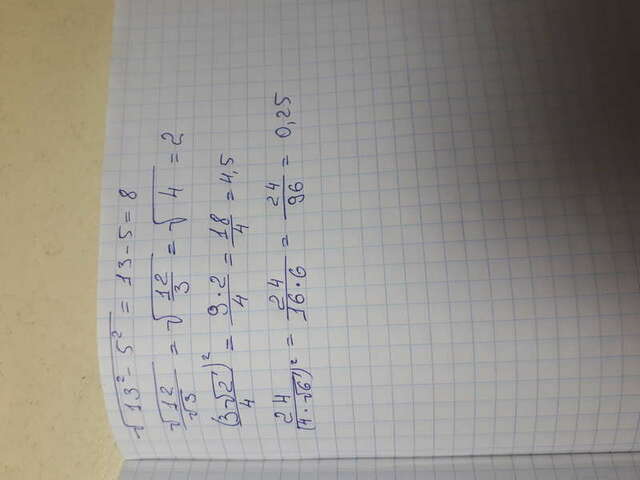 √(13² - 5²) = 13 - 5 = 8
√12/√3 = √(12/3) = √4 = 2
(3√2)²/4 = 9·2/4 = 18/4 = 4,5
24/(4·√6)² = 24/16·6 = 24/96 = 0,25